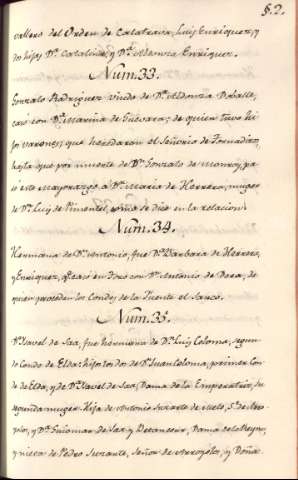 §.2.
vallero del Orden de Calatrava, Luis Enriquez, y
dos hijas Dª. Catalina, y Dª. Aldonza Enriquez.
Num. 33.
Gonzalo Rodriguez viudo de Dª. Aldonza
casó con Dª. Marina de Guevara, de quien tuvo hi
jos varones, que heredaron el Señorio de
hasta que por muerte de Dn. Gonzalo de Monroy, pa
só este mayorazgo a Dª. Maria de Herrera, muger
de Dn. Luis de Pimentel, como se dice en la relacion.
Num. 34.
Hermana de Dn. Antonio, fue Dª. Barbara de Herrera,
y Enriquez, q. casó en Toro con Dn. Antonio de Deza, de
quien proceden los Condes de la Fuente el Sauco.
Num. 35.
Dª. Isavel de Saa, fue hermana de Dn. Luis Coloma, segun
do Conde de Elda: hijos los dos de Dn. Juan Coloma, primer Con
de de Elda, y de Dª. Isavel de Saa, Dama de la Emperatriz, su
segunda muger. Hija de Antonio de Melo, Sr. de
y Dª. Guiomar de Saa y Betancur, Dama de la Reyna,
y nieta de Pedro Señor de y Doña